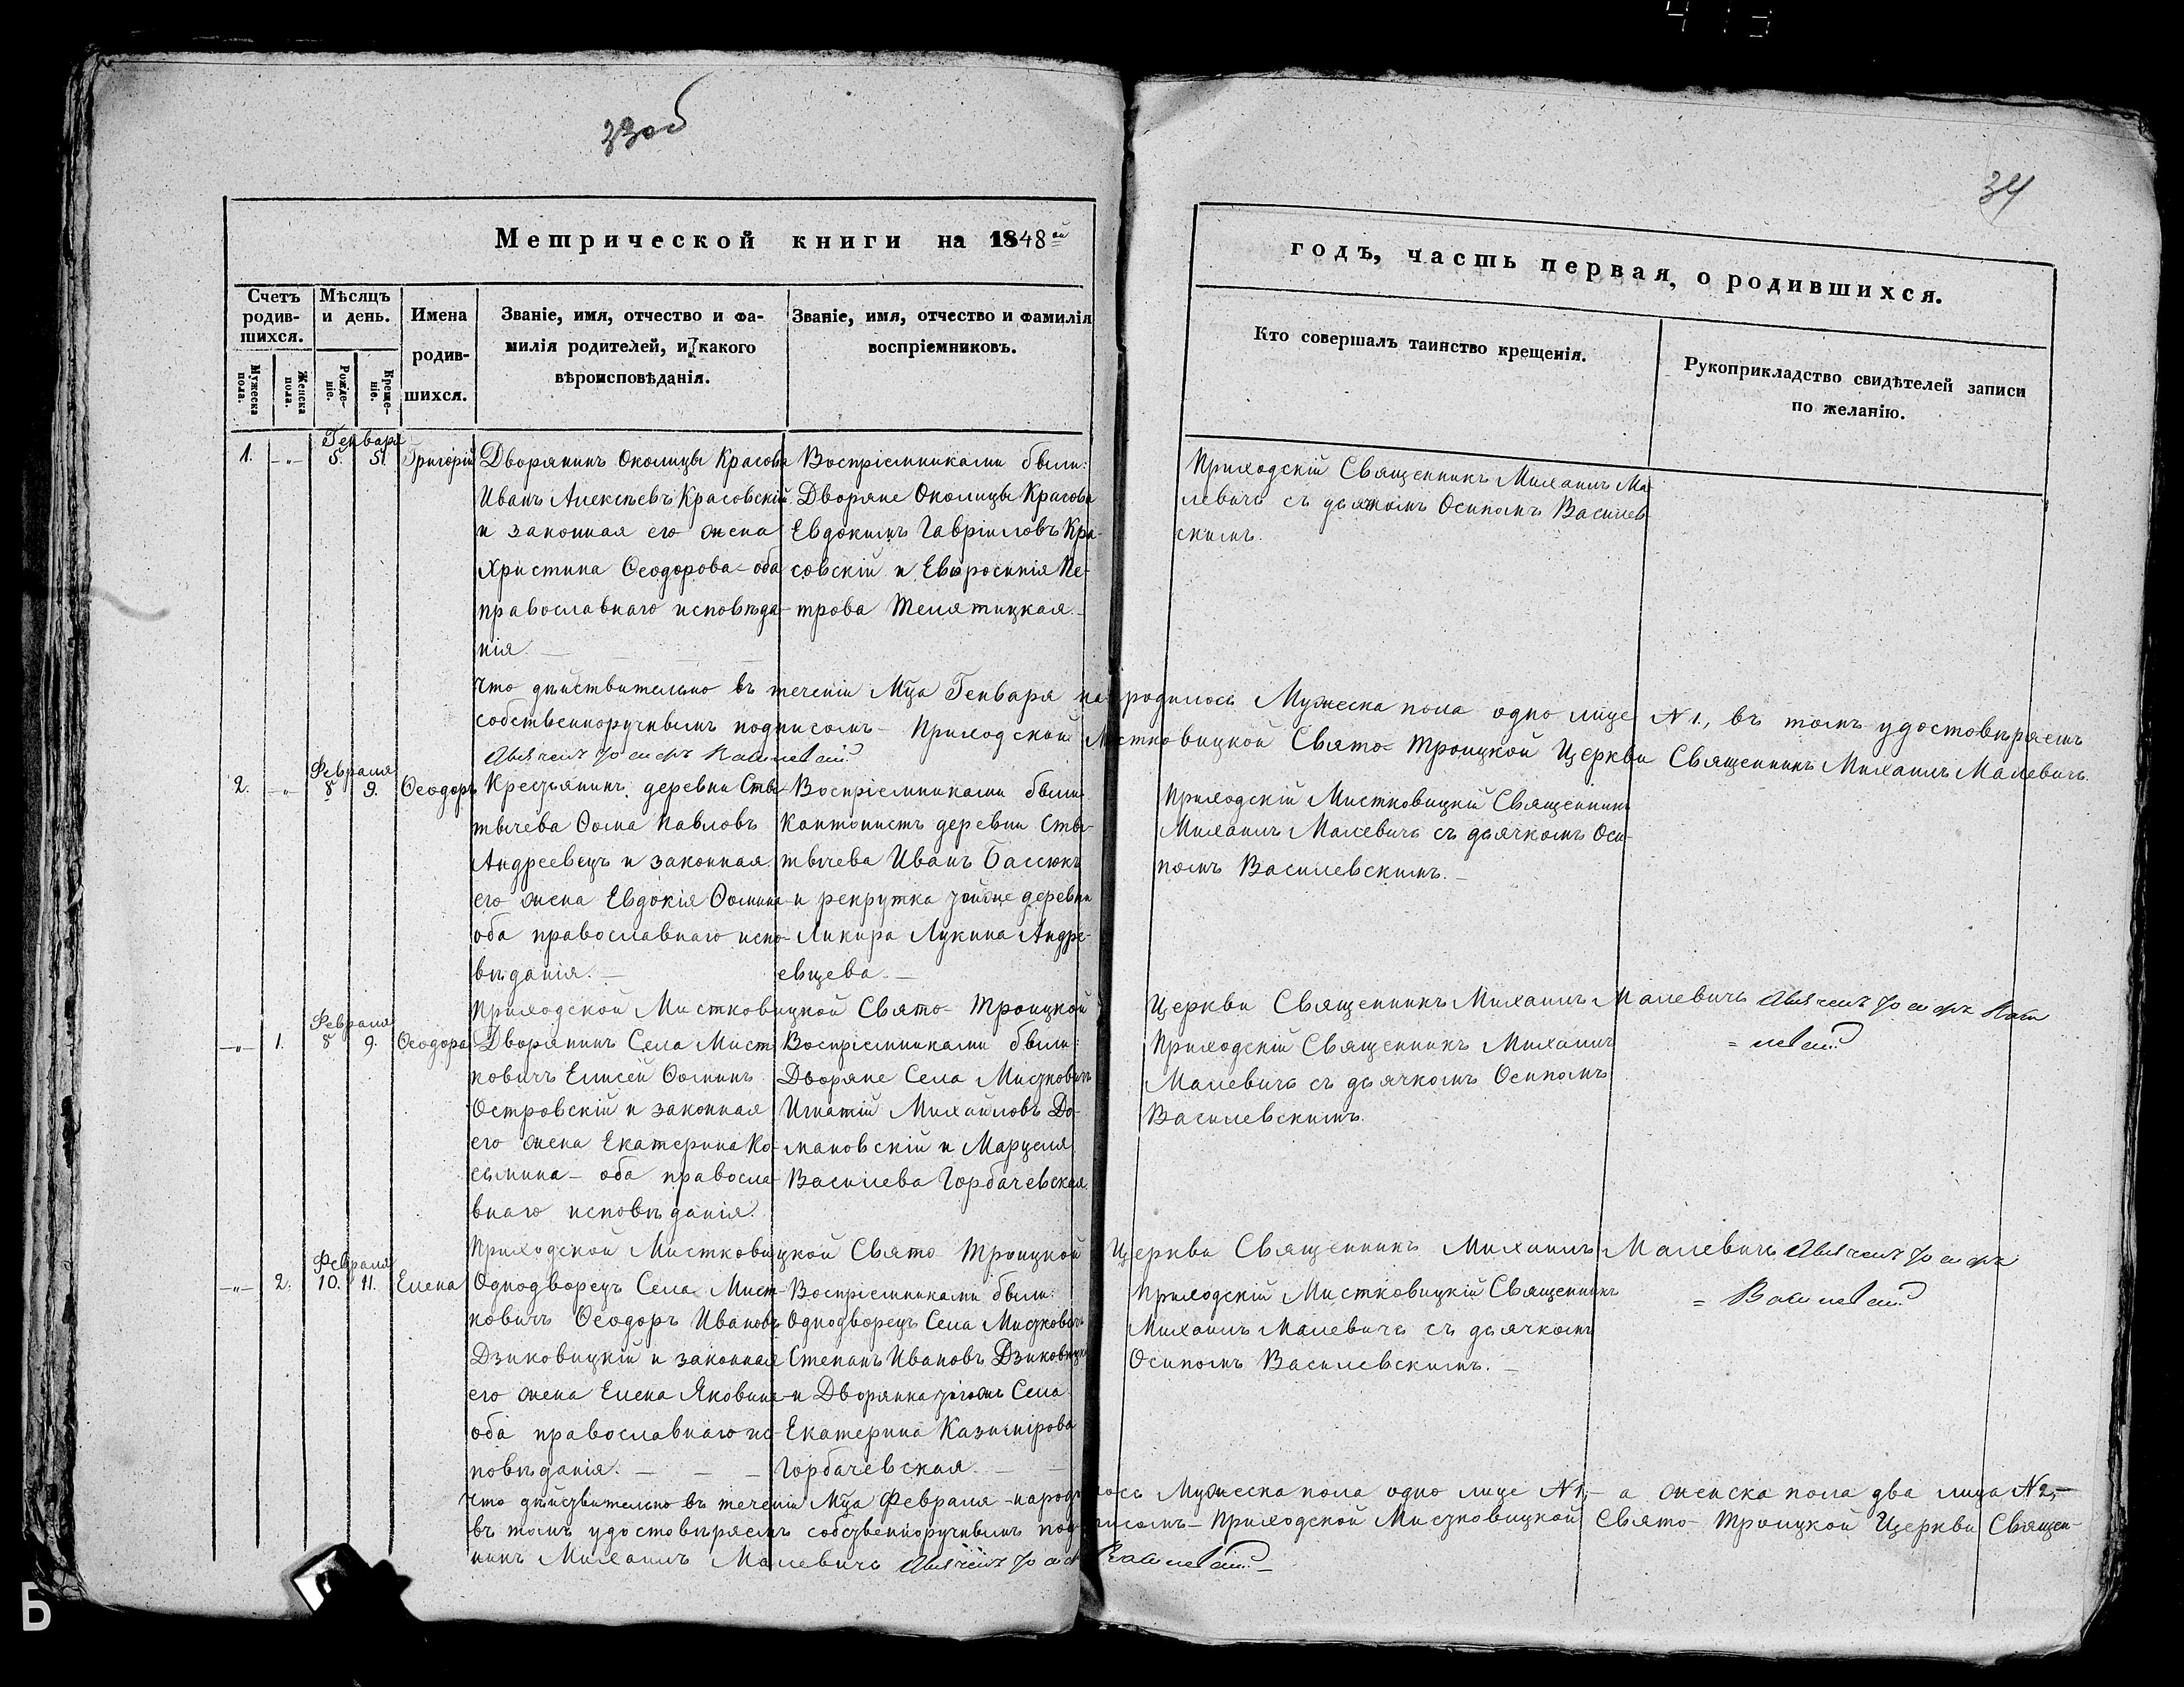 33об
34
Метрической книги на 1848ой
годъ, часть первая, о родившихся.
Счетъ родив-шихся.
Мужеска пола.
Женска пола.
Мѣсяцъ и день.
Рожде-ніе.
Креще-ніе.
Имена
родив-
шихся.
Званіе, имя, отчество и фа-
милія родителей, и какого
вѣроисповѣданія.
Званіе, имя, отчество и фамилія
воспріемниковъ.
Кто совершалъ таинство крещенія.
Рукоприкладство свидѣтелей записи
по желанію.
1. -"- Генваря 5. 5. Григорій
Дворянинъ Околицы Красова
Иванъ Алексѣевъ Красовскій
и законная его жена
Христина Ѳеодорова - оба
православнаго исповѣда-
нія.
Воспріемниками были:
Дворяне Околицы Красова
Евдокимъ Гавріиловъ Кра-
совскій и Евфросинія Пе-
трова Телятицкая.
Приходскій Священникъ Михаилъ Ма
левичь съ дьячкомъ Осипомъ Василев
скимъ.
Что дѣйствительно въ теченіи Мца Генваря народилось Мужеска пола одно лице N 1., въ томъ удостовѣряемъ
собственноручнымъ подписомъ - Приходской Мистковицкой Свято-Троицкой Церкви Священникъ Михаилъ Малевичь.
2. -"- Февраля 8 9. Ѳеодоръ
Крестьянинъ деревни Ств-
тычева Ѳома Павловъ
Андреевецъ и законная
его жена Евдокія Ѳомина
оба православнаго испо-
вѣданія.
Воспріемниками были
Кантонистъ деревни Ств-
тычева Иванъ Басюкъ
и рекрутка тойже деревни
Ликира Лукина Андре-
евцева.
Приходскій Мистковицкій Священникъ
Михаилъ Малевичь съ дьячкомъ Оси-
помъ Василевскимъ.
Приходской Мистковицкой Свято-Троицкой Церкви Священникъ Михаилъ Малевичь
-"- 1. Февраля 8 9. Ѳеодора
Дворянинъ Села Мист-
ковичъ Елисей Ѳоминъ
Островскій и законная
его жена Екатерина Ко-
сьмина - оба правосла-
внаго исповѣданія.
Воспріемниками были:
Дворяне Села Мистковичъ
Игнатій Михайловъ До-
мановскій и Марцеля
Василева Горбачевская.
Приходскій Священникъ Михаилъ
Малевичь съ дьячкомъ Осипомъ
Василевскимъ.
Приходской Мистковицкой Свято Троицкой Церкви Священникъ Михаилъ Малевичь
-"- 2. Февраля 10. 11. Елена
Однодворецъ Села Мист-
ковичъ Ѳеодоръ Ивановъ
Дзиковицкій и законная
его жена Елена Яковина
оба православнаго ис-
повѣданія.
Воспріемниками были:
Однодворецъ Села Мистковичъ
Степанъ Ивановъ Дзиковицкій
и Дворянка тогожъ Села
Екатерина Казимірова
Горбачевская.
Приходскій Мистковицкій Священникъ
Михаилъ Малевичь съ дьячкомъ
Осипомъ Василевскимъ.
Что дѣйствительно въ теченіи Мца Февраля народилось Мужеска пола одно лице N 1,- а женска пола два лица N 2,-
въ томъ удостовѣряемъ собственноручнымъ подписомъ - Приходской Мистковицкой Свято-Троицкой Церкви Священ-
никъ Михаилъ Малевичь
Б